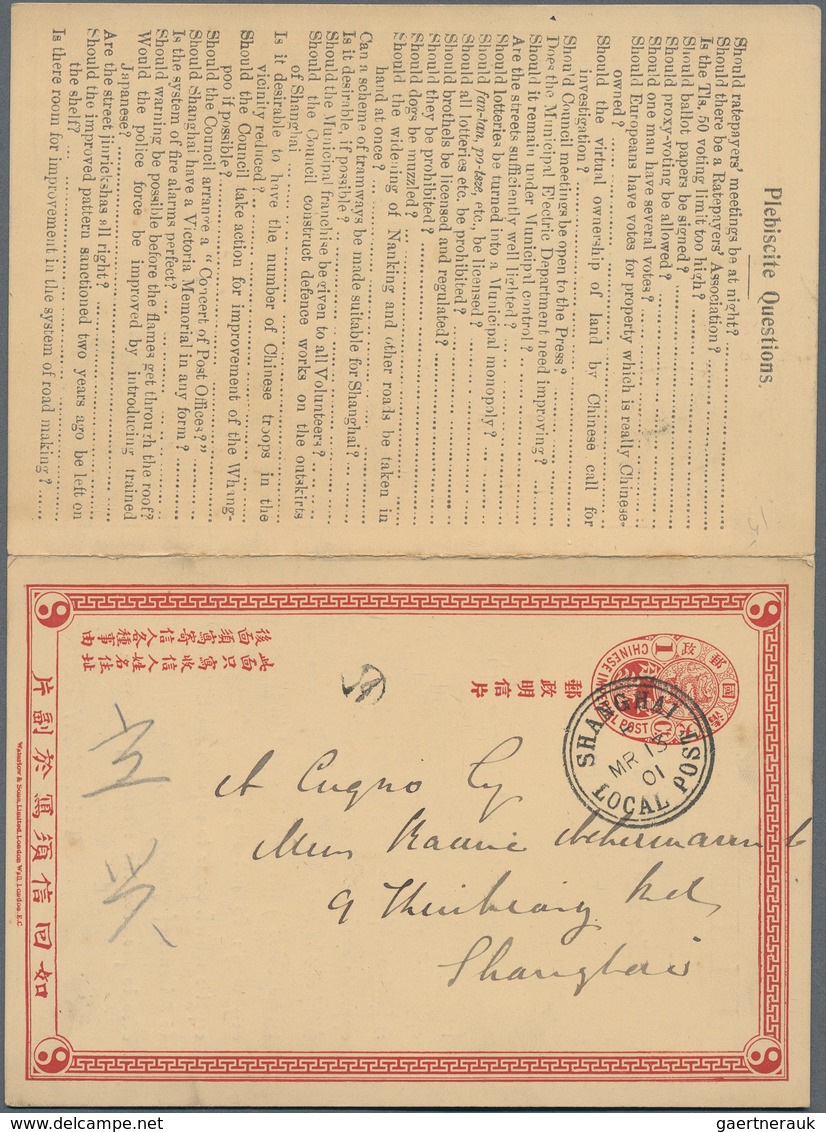 Plebiscite Questions.
Should ratepayers' meetings be at night?
Should there be a Ratepayers' Association?
Is the Tls. 50 voting limit too high?
Should ballot papers be signed?
Should proxy-voting be allowed?
Should one man have several votes?
Should Europeans have votes for property which is really Chinese-
owned?
Should the virtual ownership of land by Chinese call for
investigation?
Should Council meetings be open to the Press?
Does the Municipal Electric Department need improving?
Should it remain under Municipal control?
Are the streets sufficiently well lighted?
Should lotteries be turned into a Municipal monopoly?
Should fan-tan, po-tsze, etc., be licensed?
Should all lotteries etc. be prohibited?
Should brothels be licensed and regulated?
Should they be prohibited?
Should dogs be muzzled?
Should the widening of Nanking and other roads be taken in
hand at once?
Can a scheme of tramways be made suitable for Shanghai?
Is it desirable, if possible?
Should the Municipal franchise be given to all Volunteers?
Should the Council construct defence works on the outskirts
of Shanghai
Is it desirable to have the number of Chinese troops in the
vicinity reduced?
Should the Council take action for improvement of the Whang-
poo if possible?
Should the Council arrange a "Concert of Post Offices?"
Should Shanghai have a Victoria Memorial in any form?
Is the system of fire alarms perfect?
Should warning be possible before the flames get through the roof?
Would the police force be improved by introducing trained
Japanese?
Are the street jinrickshas all right?
Should the improved pattern sanctioned two years ago be left on
the shelf?
Is there room for improvement in the system of road making?
大清國郵政
CHINESE IMPERIAL POST
1 C
SHANGHAI
MR 15
01
LOCAL POST
郵政明信片
此面只寫收信人姓名住址
後面須寫寄信人各種事由
如回信須寫於副片
Waterlow & Sons, Limited, London Wall, London, E.C.
A Cugno Esq
9
Rd
Shanghai
gaertnerauk